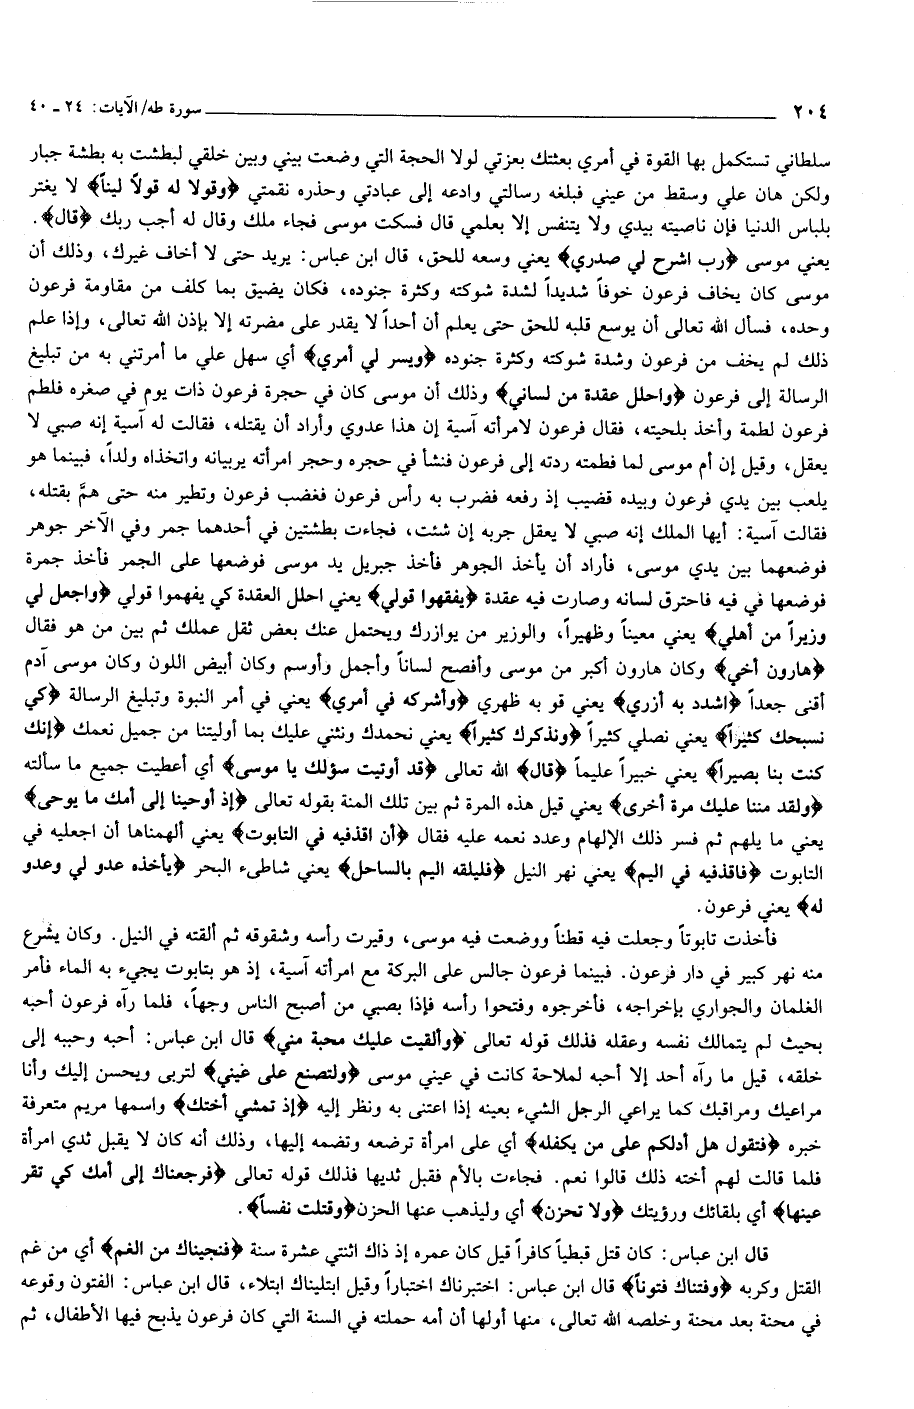 ٢٠٤ سورة طه/ الآيات: ٢٤ ـ ٤٠
سلطاني تستكمل بها القوة في أمري بعثتك بعزتي لولا الحجة التي وضعت بيني وبين خلقي لبطشت به بطشة جبار
ولكن هان علي وسقط من عيني فبلغه رسالتي وادعه إلى عبادتي وحذره نقمتي ﴿وقولا له قولاً ليناً﴾ لا يغتر
بلباس الدنيا فإن ناصيته بيدي ولا يتنفس إلا بعلمي قال فسكت موسى فجاء ملك وقال له أجب ربك ﴿قال﴾.
يعني موسى ﴿رب اشرح لي صدري﴾ يعني وسعه للحق، قال ابن عباس: يريد حتى لا أخاف غيرك، وذلك أن
موسى كان يخاف فرعون خوفاً شديداً لشدة شوكته وكثرة جنوده، فكان يضيق بما كلف من مقاومة فرعون
وحده، فسأل الله تعالى أن يوسع قلبه للحق حتى يعلم أن أحداً لا يقدر على مضرته إلا بإذن الله تعالى، وإذا علم
ذلك لم يخف من فرعون وشدة شوكته وكثرة جنوده ﴿ويسر لي أمري﴾ أي سهل علي ما أمرتني به من تبليغ
الرسالة إلى فرعون ﴿واحلل عقدة من لساني﴾ وذلك أن موسى كان في حجرة فرعون ذات يوم في صغره فلطم
فرعون لطمة وأخذ بلحيته، فقال فرعون لامرأته آسية إن هذا عدوي وأراد أن يقتله، فقالت له آسية إنه صبي لا
يعقل، وقيل إن أم موسى لما فطمته ردته إلى فرعون فنشأ في حجره وحجر امرأته يربيانه واتخذاه ولداً، فبينما هو
يلعب بين يدي فرعون وبيده قضيب إذ رفعه فضرب به رأس فرعون فغضب فرعون وتطير منه حتى همَّ بقتله،
فقالت آسية: أيها الملك إنه صبي لا يعقل جربه إن شئت، فجاءت بطشتين في أحدهما جمر وفي الآخر جوهر
فوضعهما بين يدي موسى، فأراد أن يأخذ الجوهر فأخذ جبريل يد موسى فوضعها على الجمر فأخذ جمرة
فوضعها في فيه فاحترق لسانه وصارت فيه عقدة ﴿يفقهوا قولي﴾ يعني احلل العقدة كي يفهموا قولي ﴿واجعل لي
وزيراً من أهلي﴾ يعني معيناً وظهيراً، والوزير من يوازرك ويحتمل عنك بعض ثقل عملك ثم بين من هو فقال
﴿هارون أخي﴾ وكان هارون أكبر من موسى وأفصح لساناً وأجمل وأوسم وكان أبيض اللون وكان موسى آدم
أقنى جعداً ﴿اشدد به أزري﴾ يعني قو به ظهري ﴿وأشركه في أمري﴾ يعني في أمر النبوة وتبليغ الرسالة ﴿كي
نسبحك كثيراً﴾ يعني نصلي كثيراً ﴿ونذكرك كثيراً﴾ يعني نحمدك ونثني عليك بما أوليتنا من جميل نعمك ﴿إنك
كنت بنا بصيراً﴾ يعني خبيراً عليماً ﴿قال﴾ الله تعالى ﴿قد أوتيت سؤلك يا موسى﴾ أي أعطيت جميع ما سألته
﴿ولقد مننا عليك مرة أخرى﴾ يعني قيل هذه المرة ثم بين تلك المنة بقوله تعالى ﴿إذ أوحينا إلى أمك ما يوحى﴾
يعني ما يلهم ثم فسر ذلك الإلهام وعدد نعمه عليه فقال ﴿أن اقذفيه في التابوت﴾ يعني ألهمناها أن اجعليه في
التابوت ﴿فاقذفيه في اليم﴾ يعني نهر النيل ﴿فليلقه اليم بالساحل﴾ يعني شاطىء البحر ﴿يأخذه عدو لي وعدو
له﴾ يعني فرعون.
فأخذت تابوتاً وجعلت فيه قطناً ووضعت فيه موسى، وقيرت رأسه وشقوقه ثم ألقته في النيل. وكان يشرع
منه نهر كبير في دار فرعون. فبينما فرعون جالس على البركة مع امرأته آسية، إذ هو بتابوت يجيء به الماء فأمر
الغلمان والجواري بإخراجه، فأخرجوه وفتحوا رأسه فإذا بصبي من أصبح الناس وجهاً، فلما رآه فرعون أحبه
بحيث لم يتمالك نفسه وعقله فذلك قوله تعالى ﴿وألقيت عليك محبة مني﴾ قال ابن عباس: أحبه وحببه إلى
خلقه، قيل ما رآه أحد إلا أحبه لملاحة كانت في عيني موسى ﴿ولتصنع على عيني﴾ لتربى ويحسن إليك وأنا
مراعيك ومراقبك كما يراعي الرجل الشيء بعينه إذا اعتنى به ونظر إليه ﴿إذ تمشي أختك﴾ واسمها مريم متعرفة
خبره ﴿فتقول هل أدلكم على من يكفله﴾ أي على امرأة ترضعه وتضمه إليها، وذلك أنه كان لا يقبل ثدي امرأة
فلما قالت لهم أخته ذلك قالوا نعم. فجاءت بالأم فقبل ثديها فذلك قوله تعالى ﴿فرجعناك إلى أمك كي تقر
عينها﴾ أي بلقائك ورؤيتك ﴿ولا تحزن﴾ أي وليذهب عنها الحزن﴿وقتلت نفساً﴾.
قال ابن عباس: كان قتل قبطياً كافراً قيل كان عمره إذ ذاك اثنتي عشرة سنة ﴿فنجيناك من الغم﴾ أي من غم
القتل وكربه ﴿وفتناك فتوناً﴾ قال ابن عباس: اختبرناك اختباراً وقيل ابتليناك ابتلاء، قال ابن عباس: الفتون وقوعه
في محنة بعد محنة وخلصه الله تعالى، منها أولها أن أمه حملته في السنة التي كان فرعون يذبح فيها الأطفال، ثم